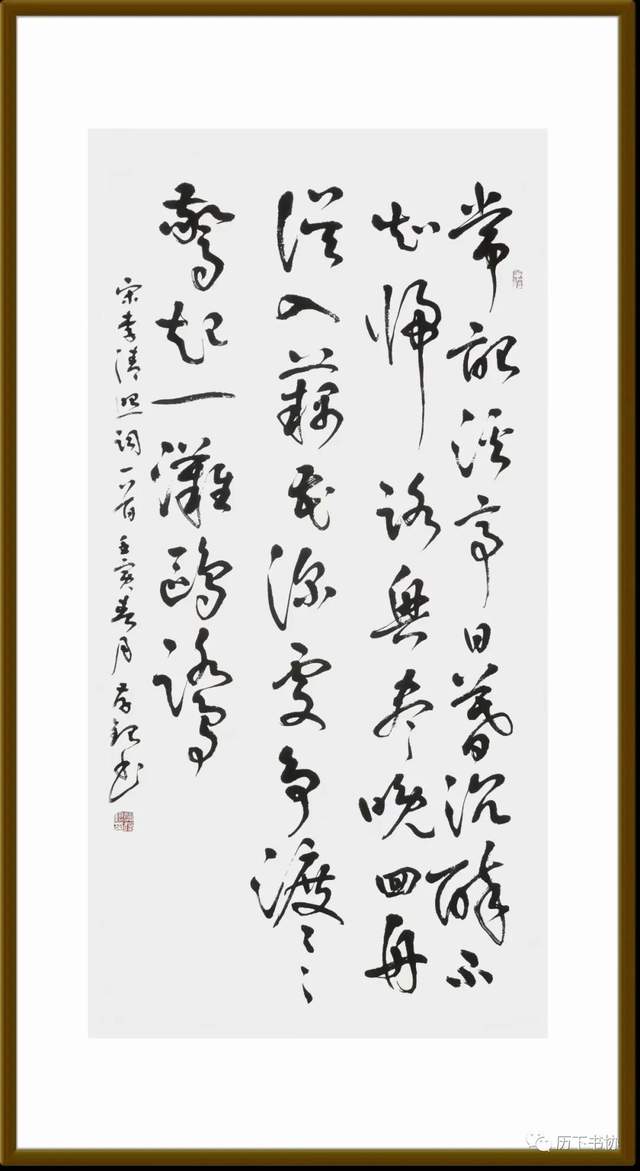 常記溪亭日暮沉醉不
知歸路興盡晚回舟
誤入藕花深處爭渡々々
驚起一灘鷗鷺
宋李清照詞一首 壬寅春月 书
历下书协